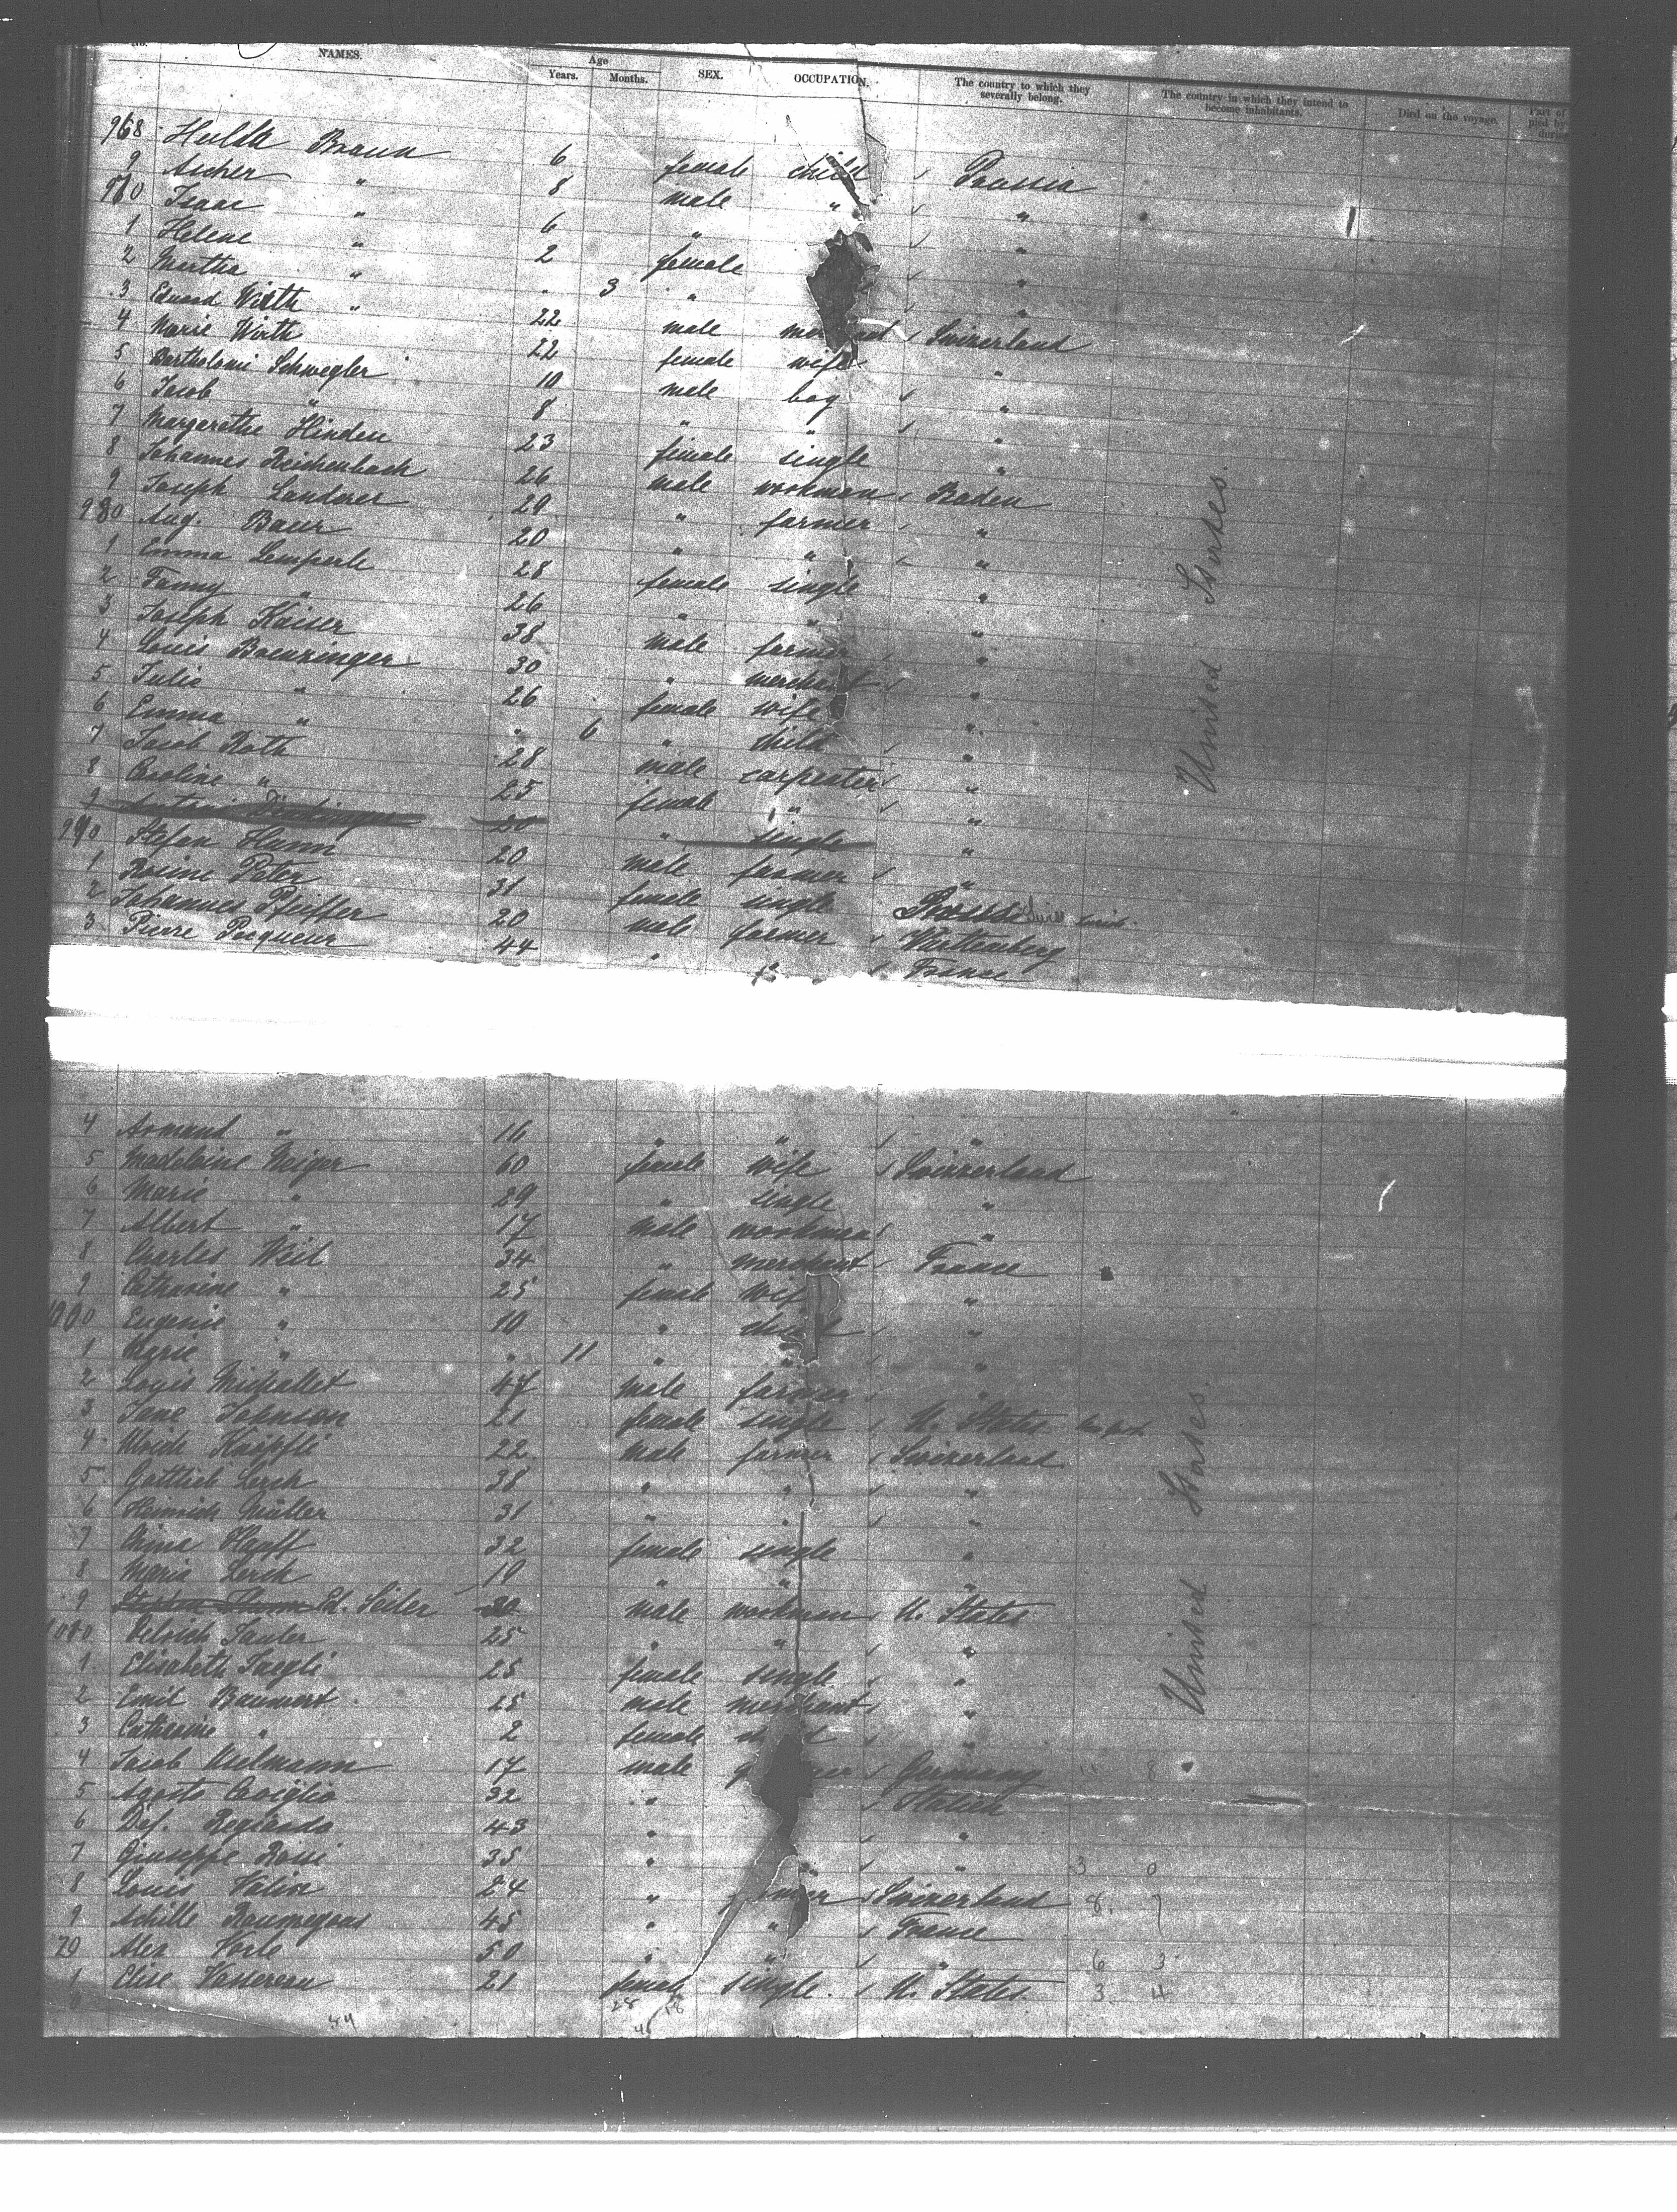 No. NAMES. Age Years. Months. SEX. OCCUPATION. The country to which they severally belong. The country in which they intend to become inhabitants. Died on the voyage. Part of
968 Hulda Braun 6 female child Prussia
9 Ascher " 8 male " "
970 Isaac " 6 " "
1 Helene " 2 female "
2 Martha " " 3 " "
3 Eduard Wirth 22 male Swizerland
4 Marie Wirth 22 female wife "
5 Schwegler 10 male boy "
6 Jacob " 8 " " "
7 Margarethe Hinden 23 female single "
8 Johannes Reichenbach 26 male workman Baden
9 Joseph Landerer 29 " farmer "
980 Aug. Baur 20 " " "
1 Emma Lemperle 28 female single "
2 Fanny " 26 " " "
3 Joseph Kaiser 38 male farmer "
4 Louis Baenzinger 30 " merchant "
5 Julie " 26 female wife "
6 Emma " " 6 " child "
7 Jacob Roth 28 male carpenter "
8 Caroline " 25 female " "
9 " single "
990 Stefan Hunn 20 male farmer "
1 Rosine Peter 31 female single
2 Johannes Pfeiffer 20 male farmer Württemberg
3 Pierre Pocqueur 44 " " France
United States.
4 Armand " 16 " " "
5 Madelaine Neiger 60 female wife Swizzerland
6 Marie " 29 " single "
7 Albert " 17 male workman "
8 Charles Weil 34 " merchant France
9 Catharine " 25 female wife "
1000 Eugenie " 10 " child "
1 " " 11 " " "
2 Louis Michallet 47 male farmer "
3 Jane Johnson 21 female single U. States
4 Knöpfli 22 male farmer Swizerland
5 Gottlieb Lerch 38 " " "
6 Heinrich Müller 31 " " "
7 Anna Hauff 32 female single "
8 Maria Lerch 19 " " "
9 Ed. Seiler male workman U. States
1010 Tauler 25 " " "
1 Elisabeth Jaegli 25 female single "
2 Emil Baumert 25 male merchant "
3 Catharine " 2 female "
4 Jacob 17 male Germany
5 Agosto Caviglio 32 " Italien
6 43 " "
7 Giuseppe Rossi 35 " " " 3 0
8 Louis 24 " Swizerland 8. 7
9 Achille 45 " " France
20 Alex 50 " " " 6 3
1 Elise Vassereau 21 female single. U. States 3 4
United States.